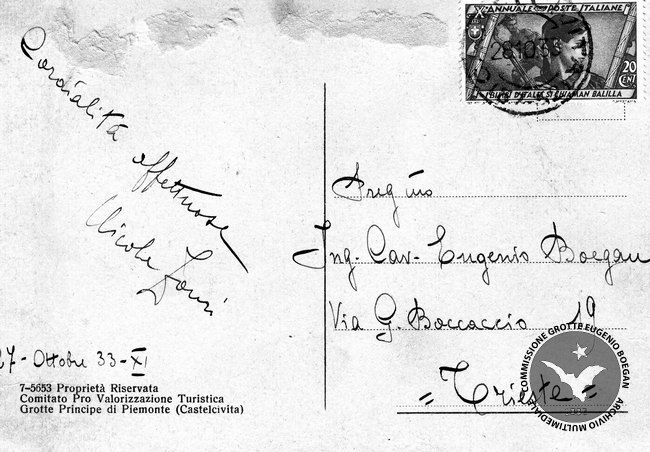 Cordialità
affettuose
Nicola
X ANNUALE POSTE ITALIANE
28.10.33
20
CENT
I BIMBI D'ITALIA SI CHIAMAN BALILLA
Preg mo
Ing. Cav. Eugenio Boegan
Via G. Boccaccio 19
= Trieste =
27 - Ottobre 33 - XI
7-5653 Proprietà Riservata
Comitato Pro Valorizzazione Turistica
Grotte Principe di Piemonte (Castelcivita)
COMMISSIONE GROTTE EUGENIO BOEGAN
ARCHIVIO MULTIMEDIALE